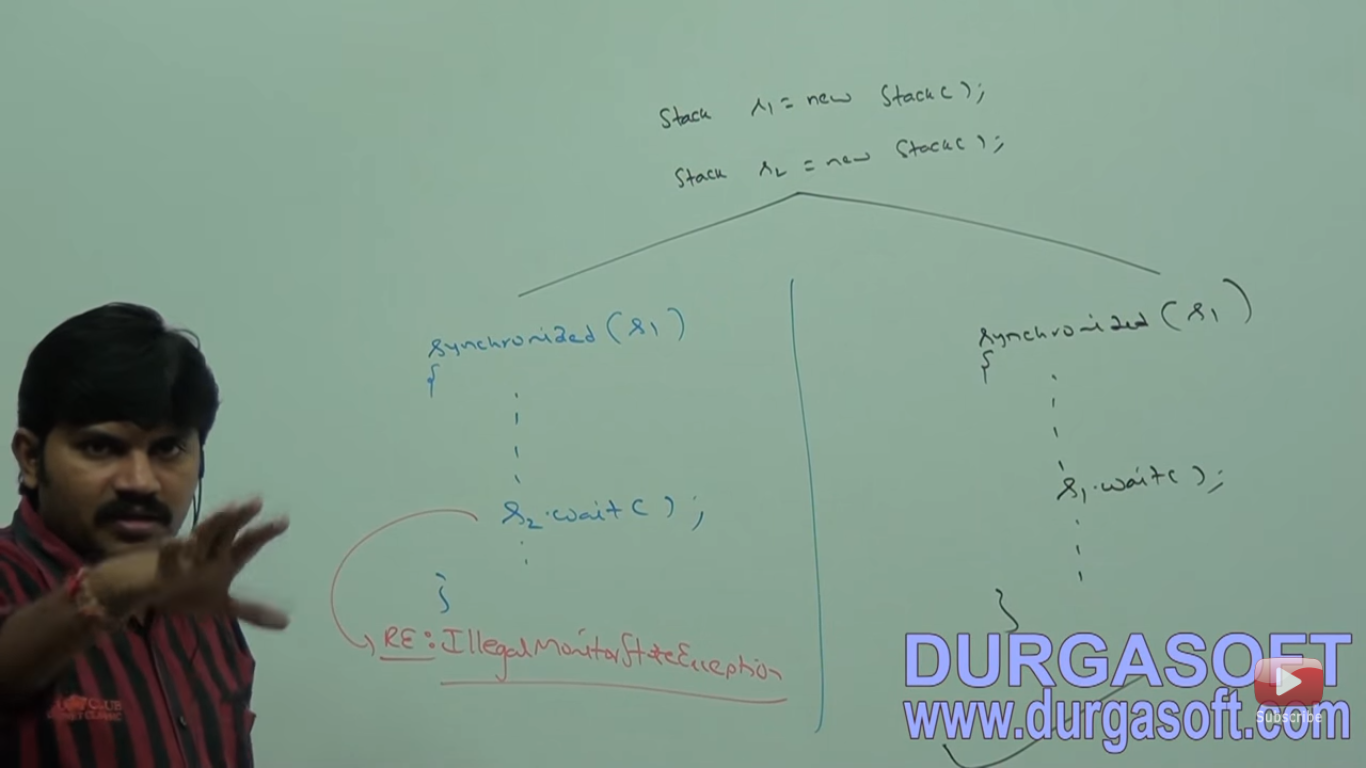 Stack s1 = new Stack();
Stack s2 = new Stack();
synchronized(s1)
{
s2.wait();
}
RE: IllegalMonitorStateException
synchronized(s1)
{
s1.wait();
}
DURGASOFT
www.durgasoft.com
Subscribe